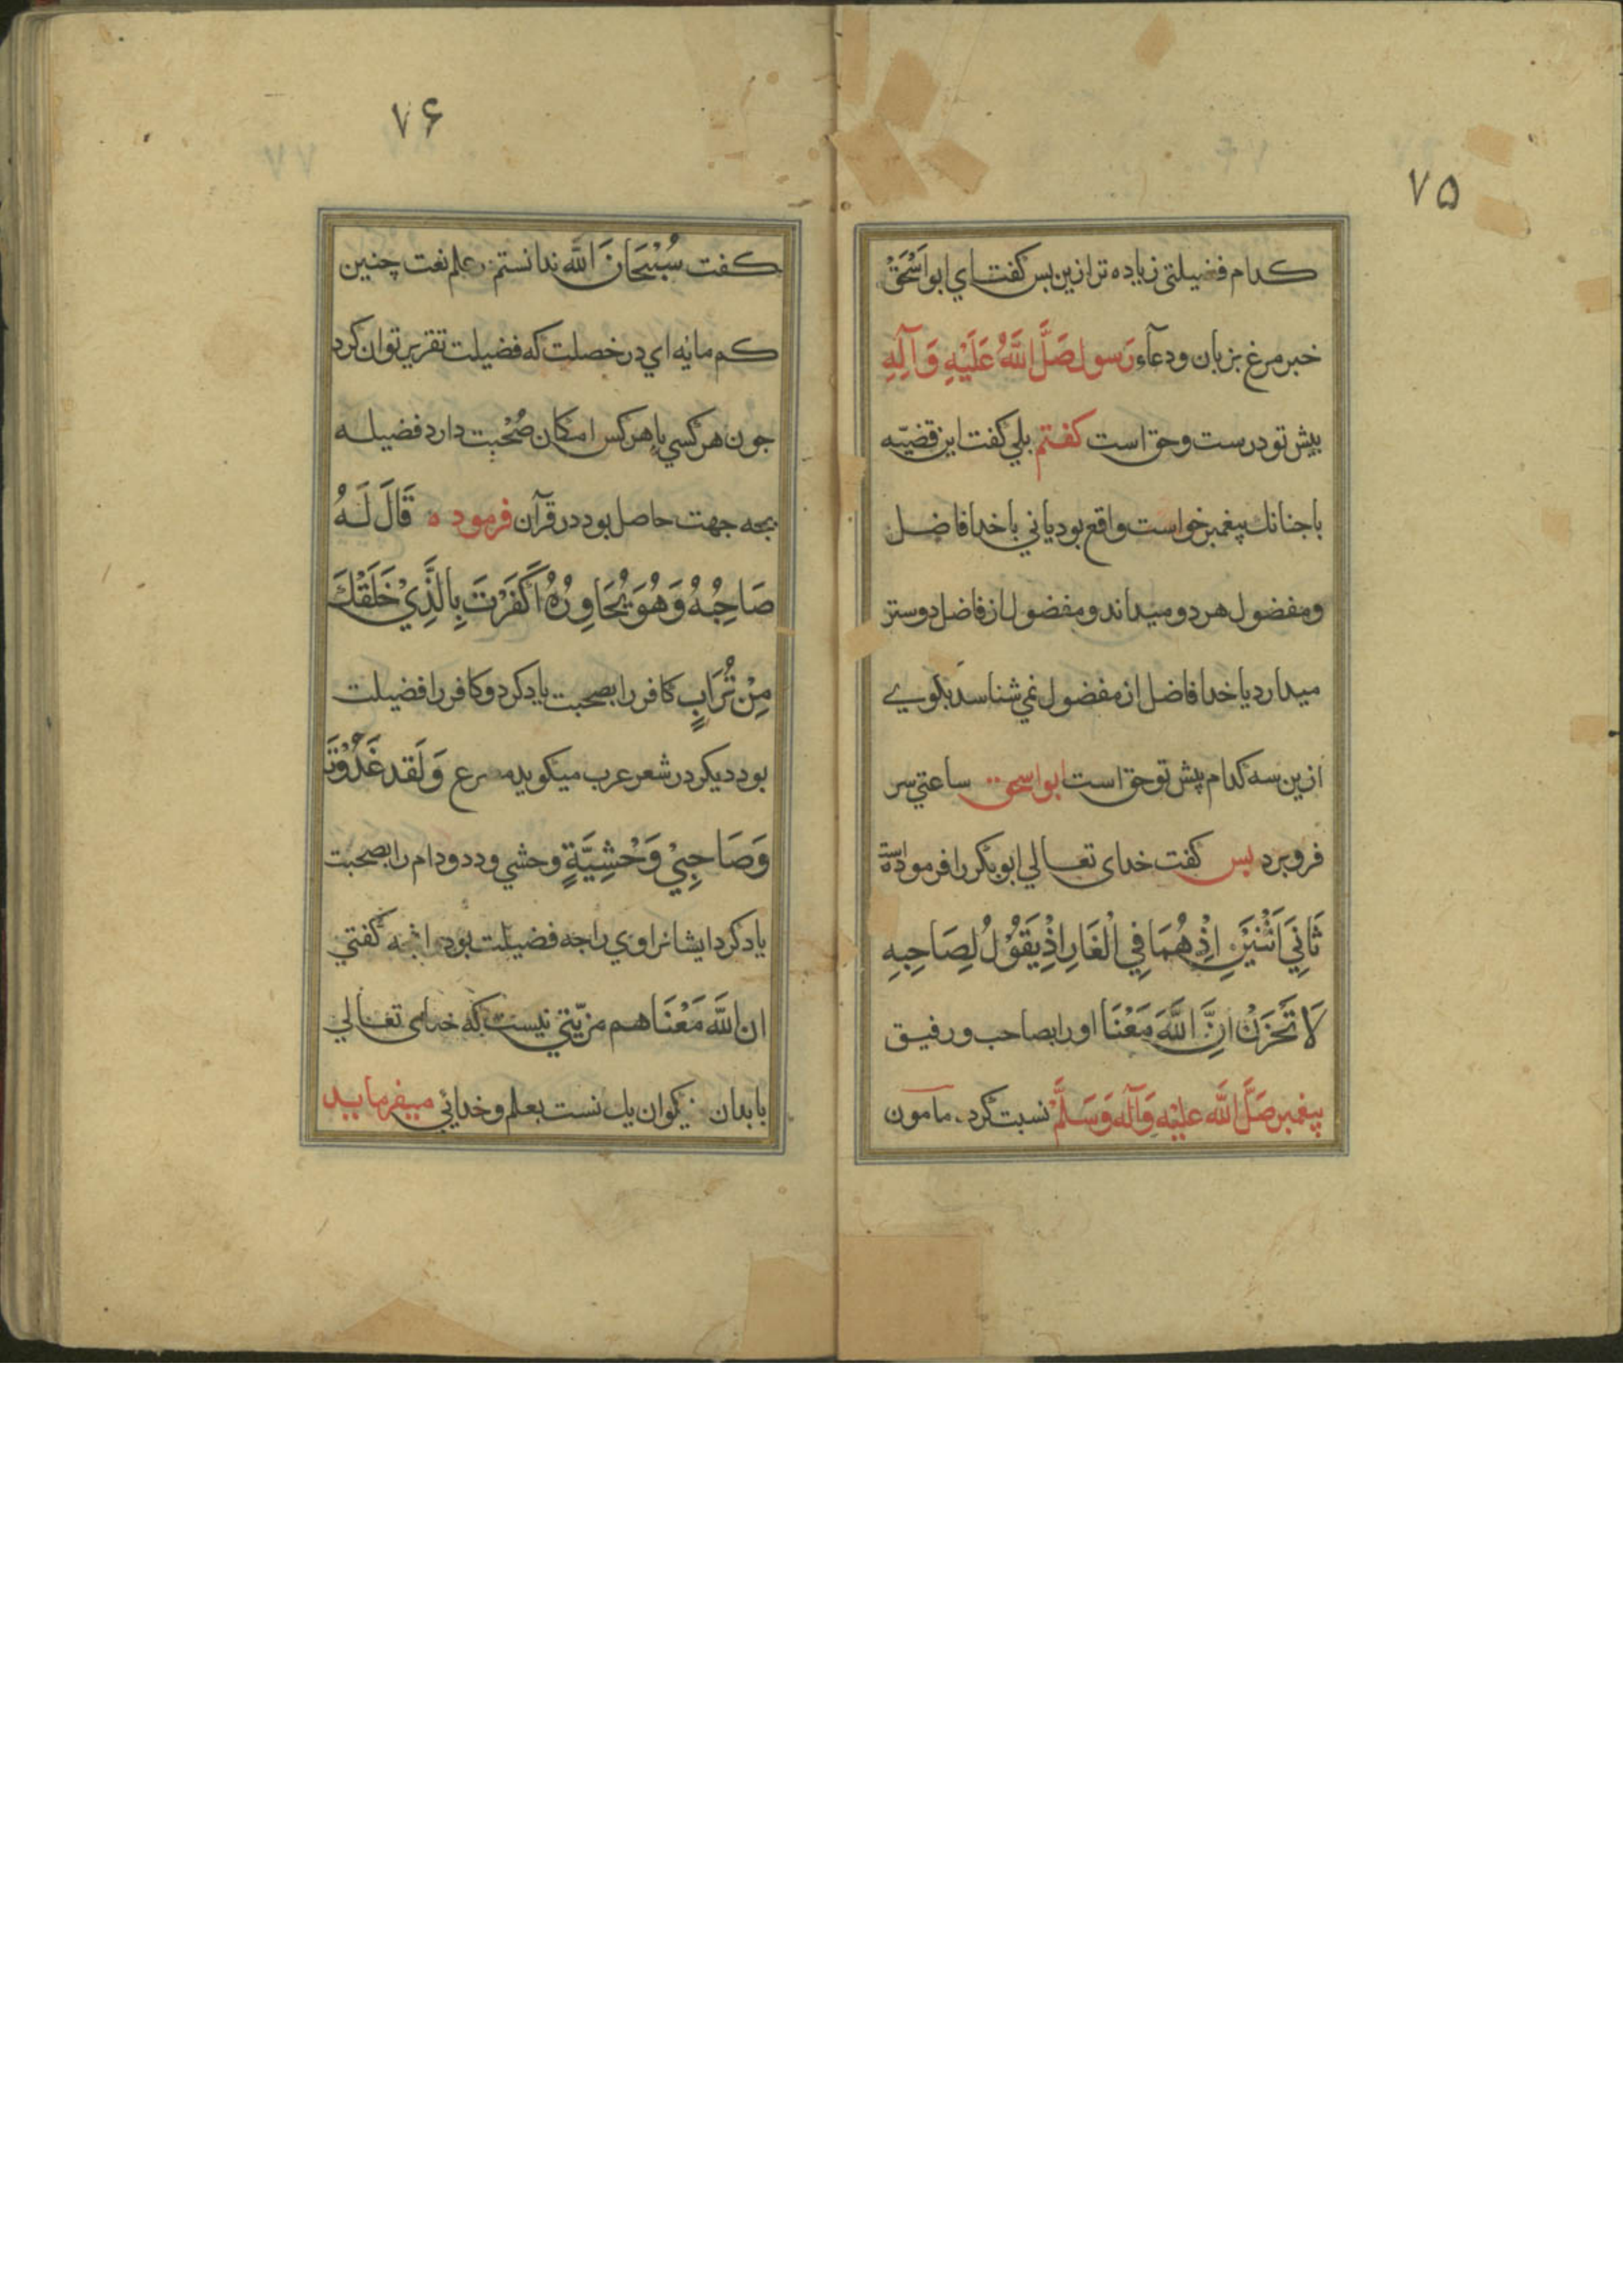 ۷۵
كدام فضيلتى زياده تر ازين بس كفت اي ابو اَسْحَقْ
خبر مرغ بزبان ودعآء رَسول صَلَّ اللَّهُ عَلَيْهِ وَ آلِهِ
پيش تو درست وحق است كفتم بلي كفت اين قضيّه
باجنانك پيغمبر خواست واقع بود ياني باخدا فاضل
ومفضول هر دو ميداند ومفضول از فاضل دوستر
ميدارد يا خدا فاضل از مفضول نمي شناسد بكوے
ازين سه كدام پيش تو حق است ابو اسحق ساعتي سر
فروبرد بس كفت خداى تعالي ابو بكر را فرموداست
ثَانِيَ اَثْنَيْنِ اِذْ هُمَا فِي الْغَارِ اِذْ يَقُوْلُ لِصَاحِبِهِ
لَا تَحْزَنْ اِنَّ اللَّهَ مَعْنَا او را بصاحب ورفيق
پيغمبر صَلَّ اللَّه عليْهِ وَآلَه وَسَلَّمْ نسبت كرد. مامون
۷۶
كفت سُبْحَانَ اَللَّه ندانستم علم نغت چنين
كم مايه اي در خصلت كه فضيلت تقرير توان كرد
جون هر كسي با هر كس امكان صُحْبت دارد فضيله
بچه جهت حاصل بود در قرآن فرموده قَالَ لَهُ
صَاحِبُهُ وَهُوَ يُحَاوِرُهُ اَكَفَرْتَ بِالَّذِيْ خَلَقَكَ
مِنْ تُرَابٍ كافر را بصحبت ياد كرد وكافر را فضيلت
بود ديكر در شعر عرب ميكويد مصرع وَلَقَد غَدُوْتَ
وَصَاحِبِيْ وَحْشِيَّةٍ وحشي ودد ودام را بصحبت
ياد كرد ايشانرا وي را جه فضيلت بود انچه كفتي
ان اللَّهَ مَعْنَا هم مزيّتي نيست كه خداى تعالي
با بدان نيكوان يك نست بعلم وخدائي ميفرمايد